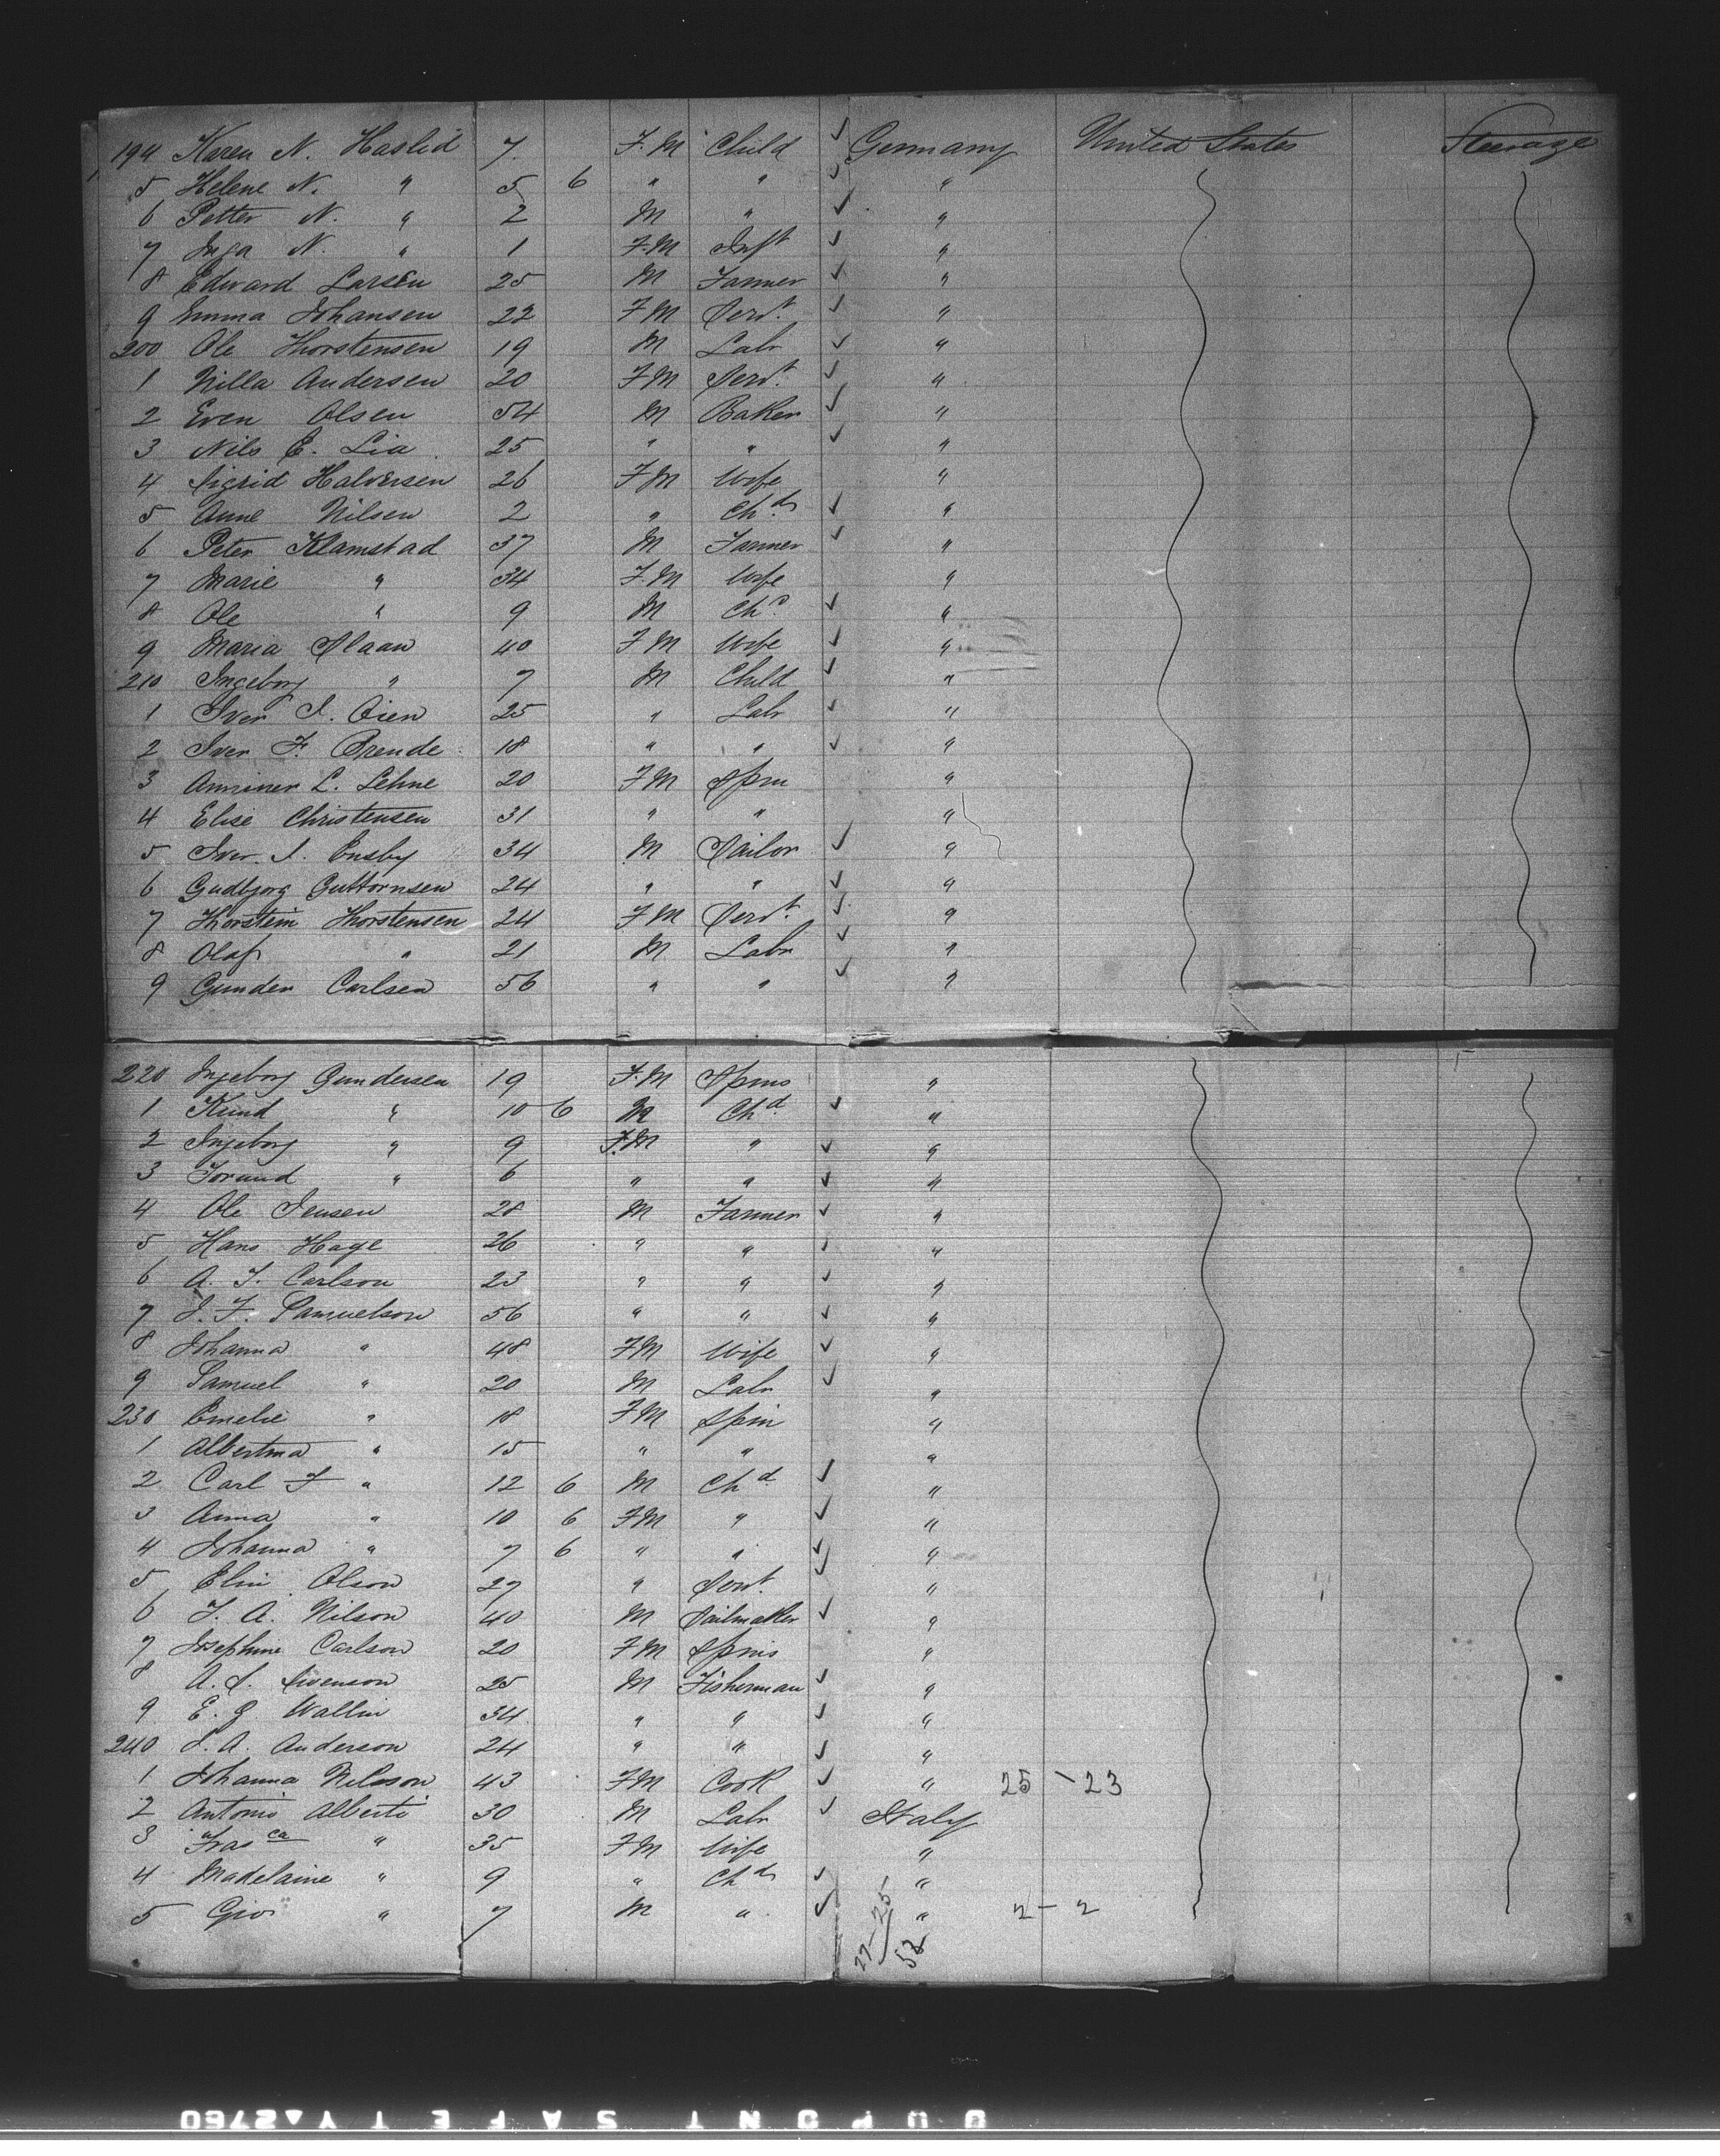 194 Karen N. Haslid 7. F.M Child ✓ Germany United States Steerage
5 Helene N. " 5 6 " " ✓ "
6 Petter N. " 2 M " ✓ "
7 Inga N. " 1 F.M Inft ✓ "
8 Edward Larsen 25 M Farmer ✓ "
9 Emma Johansen 22 F M Servt. ✓ "
200 Ole Thorstensen 19 M Labr ✓ "
1 Nilla Andersen 20 F M Servt. ✓ "
2 Even Olsen 54 M Baker ✓ "
3 Nils E. Lia 25 " " ✓ "
4 Sigrid Halversen 26 F M Wife "
5 Anne Nilsen 2 " Chd ✓ "
6 Peter Klamstad 37 M Farmer ✓ "
7 Marie " 34 F.M Wife "
8 Ole " 9 M Chd ✓ "
9 Maria Slaan 40 F M Wife ✓ "
210 Ingeborg " 7 M Child ✓ "
1 Iver I. Oien 25 " Labr ✓ "
2 Iver F. Brende 18 " " ✓ "
3 L. Lehne 20 F M Spin "
4 Elise Christensen 31 " " "
5 Iver I. Ensby 34 M Sailor ✓ "
6 Gudbjorg Guttormsen 24 " " ✓ "
7 Thorstein Thorstensen 24 F M Servt. ✓ "
8 Olaf " 21 M Labr ✓ "
9 Gunder Carlsen 56 " " ✓ "
220 Ingeborg Gundersen 19 F.M Spins "
1 Knud " 10 6 M Chd ✓ "
2 Ingeborg " 9 F.M " ✓ "
3 Torund " 6 " " ✓ "
4 Ole Jensen 28 M Farmer ✓ "
5 Hans Hage 26 " " "
6 A. J. Carlson 23 " " ✓ "
7 J. F. Samuelson 56 " " ✓ "
8 Johanna " 48 F M Wife ✓ "
9 Samuel " 20 M Labr ✓ "
230 Emelie " 18 F M Spin "
1 Albertina " 15 " " "
2 Carl F " 12 6 M Chd ✓ "
3 Anna " 10 6 F M " ✓ "
4 Johanna " 7 6 " " ✓ "
5 Elin Olson 27 " Servt. ✓ "
6 J. A. Nilson 40 M Sailmaker ✓ "
7 Josephine Carlson 20 F M Spins "
8 A. S. Swenson 25 M Fisherman ✓ "
9 E. G. Wallin 34 " " ✓ "
240 J. A. Anderson 24 " " ✓ "
1 Johanna Nilsson 43 F M Cook ✓ " 25 - 23
2 Antonio Alberti 30 M Labr ✓ Italy
3 Frasca " 35 F M Wife "
4 Madelaine " 9 " Chd ✓ "
5 Gio " 7 M " ✓ " 2 - 2
27-25
52
DUPONT SAFETY▲2760